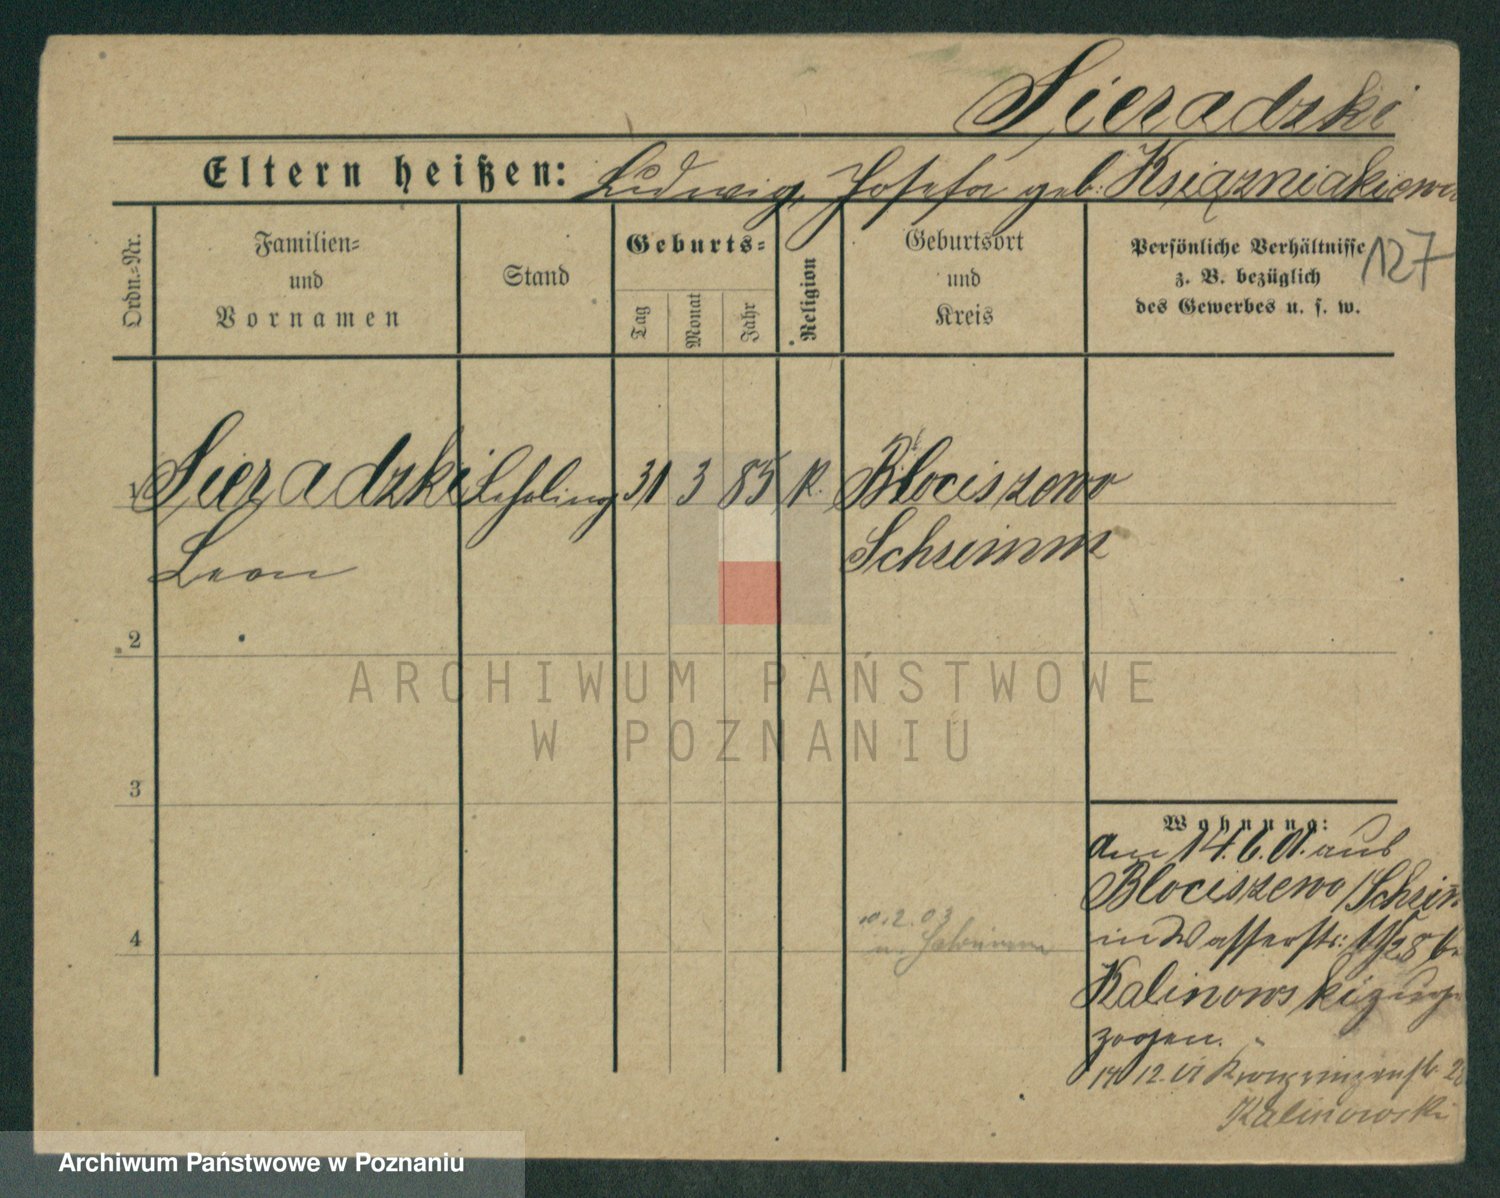 Sieradzki
Eltern heißen: Ludwig, Josefa geb: Książniakiewi
Ordn.=Nr.
Familien=
und
Vornamen
Stand
Geburts=
Tag
Monat
Jahr
Religion
Geburtsort
und
Kreis
Persönliche Verhältnisse
z. B. bezüglich
des Gewerbes u. s. w.
127
1 Sieradzki Lehrling 31 3 85 k. Blociszewo
Leon Schrimm
2
ARCHIWUM PAŃSTWOWE
W POZNANIU
3
Wohnung:
am 14.6.01. aus
Blociszewo/Schrim
in Wasserstr:
4
10.2.03
n.
Kalinowski zuge
zogen.
14 12. 01 Kronprinzenstr 2
Kalinowski
Archiwum Państwowe w Poznaniu